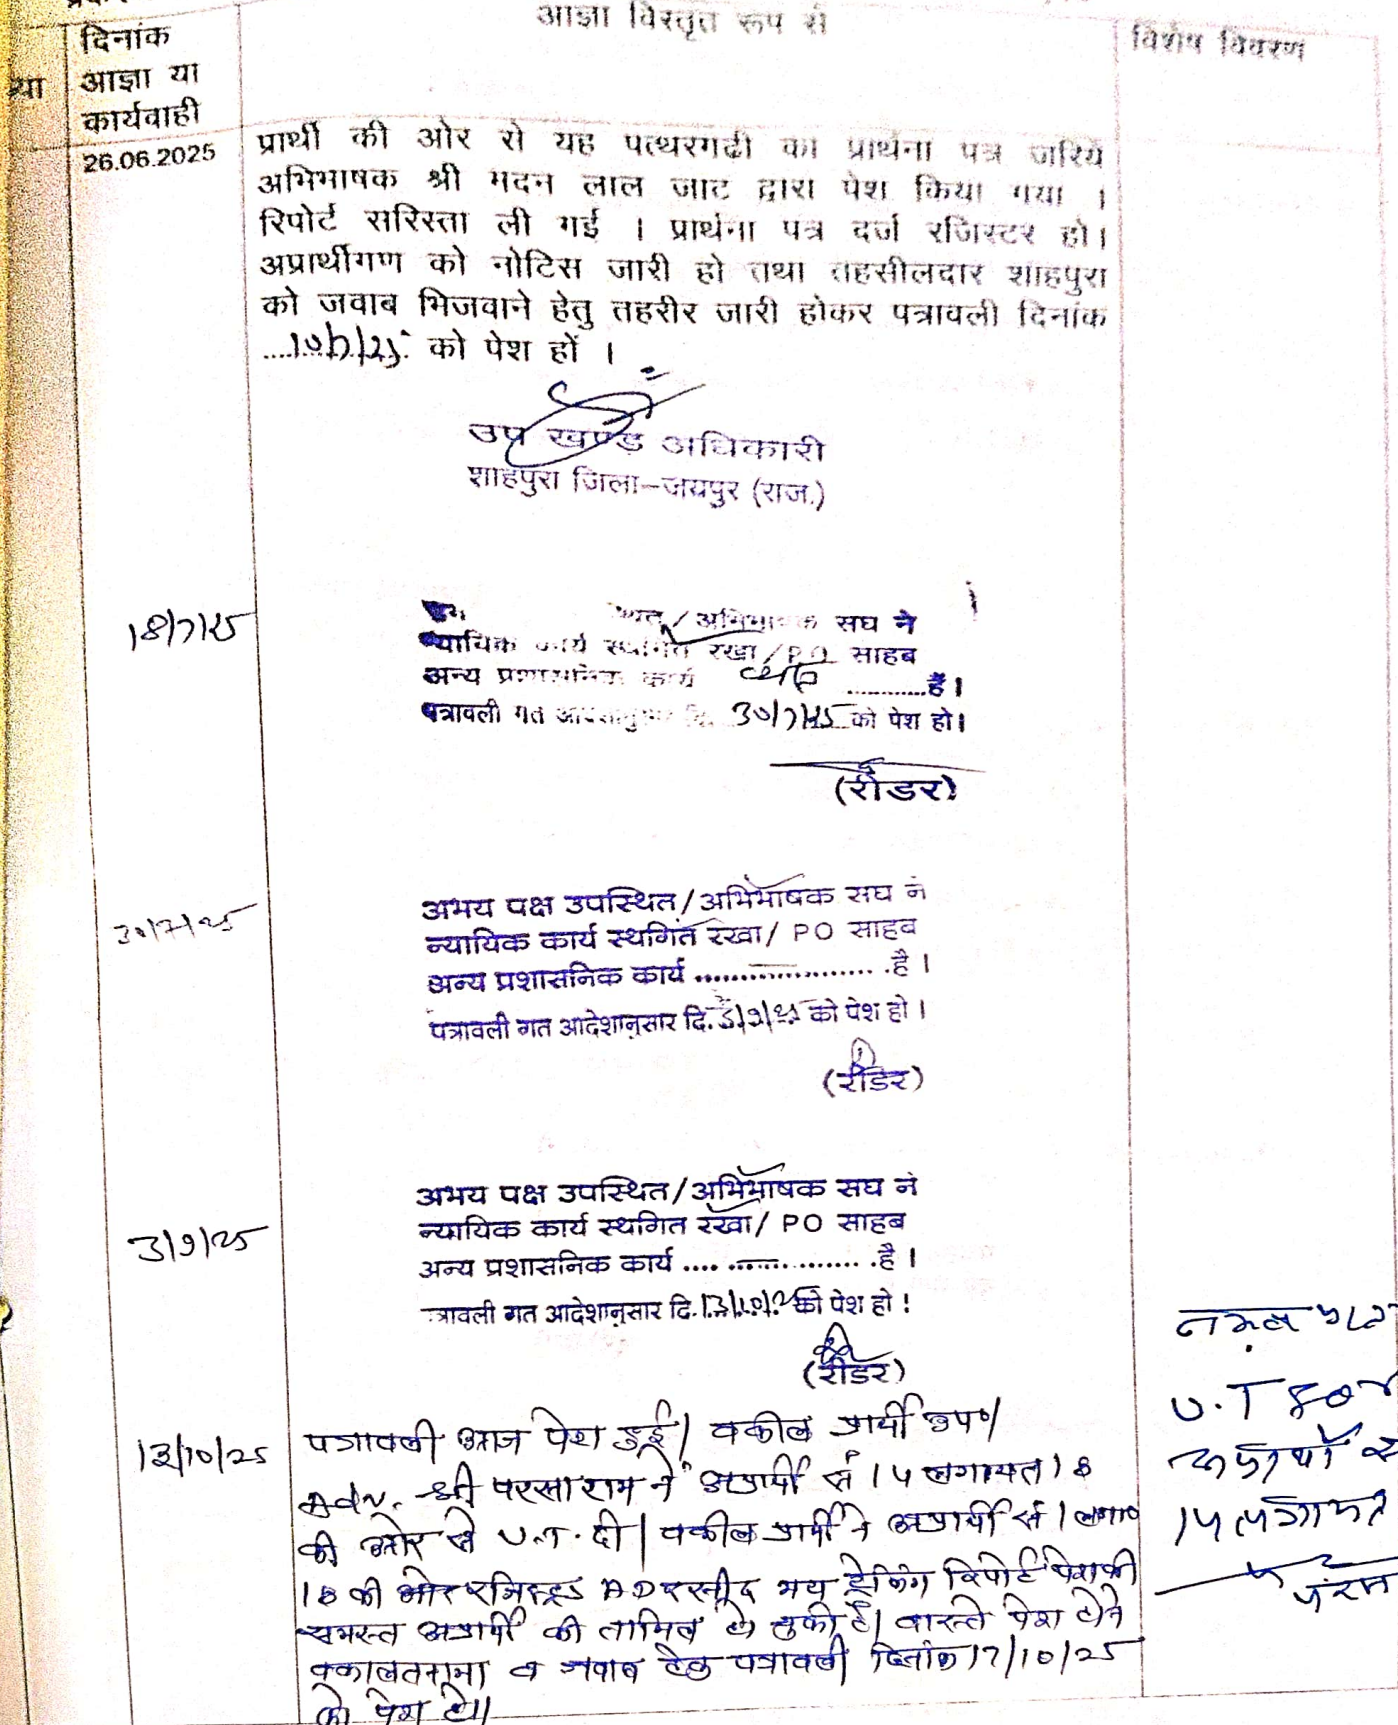 आज्ञा विस्तृत रूप से
विशेष विवरण
दिनांक
आज्ञा या
कार्यवाही
या
26.06.2025
प्रार्थी की ओर से यह पत्थरगढी का प्रार्थना पत्र जरिये
अभिभाषक श्री मदन लाल जाट द्वारा पेश किया गया ।
रिपोर्ट सरिस्ता ली गई । प्रार्थना पत्र दर्ज रजिस्टर हो।
अप्रार्थीगण को नोटिस जारी हो तथा तहसीलदार शाहपुरा
को जवाब भिजवाने हेतु तहरीर जारी होकर पत्रावली दिनांक
को पेश हों ।
उप खण्ड अधिकारी
शाहपुरा जिला-जयपुर (राज.)
18/7/25
/ अभिभाषक सघ ने
न्यायिक कार्य स्थगित रखा / PO साहब
अन्य प्रशासनिक कार्य ............है।
पत्रावली गत आदेशानुसार दि. 30/7/25 को पेश हो।
(रीडर)
30/7/25
अभय पक्ष उपस्थित/अभिभाषक सघ ने
न्यायिक कार्य स्थगित रखा/ PO साहब
अन्य प्रशासनिक कार्य .................... है।
पत्रावली गत आदेशानुसार दि. 3/9/25 को पेश हो।
(रीडर)
3/9/25
अभय पक्ष उपस्थित/अभिभाषक सघ ने
न्यायिक कार्य स्थगित रखा/ PO साहब
अन्य प्रशासनिक कार्य .................... है।
त्रावली गत आदेशानुसार दि. 13/10/25 को पेश हो!
(रीडर)
13/10/25
पत्रावली आज पेश हुई। वकील प्रार्थी उप०।
Adv. श्री परसाराम ने अप्रार्थी सं 14 लगायत 18
की ओर से U.T. दी। वकील प्रार्थी ने अप्रार्थी सं 1 लगा०
18 की ओर रजिस्टर्ड AD रसीद मय ट्रेकिंग रिपोर्ट पेश की
समस्त अप्रार्थी की तामिल हो चुकी है। वास्ते पेश होने
वकालतनामा व जवाब हेतु पत्रावली दिनांक 17/10/25
को पेश हो।
U.T
14 लगायत